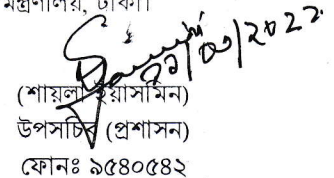 মন্ত্রণালয়, ঢাকা।
(শায়লা ইয়াসমিন)
উপসচিব (প্রশাসন)
ফোনঃ ৯৫৪০৫৪২